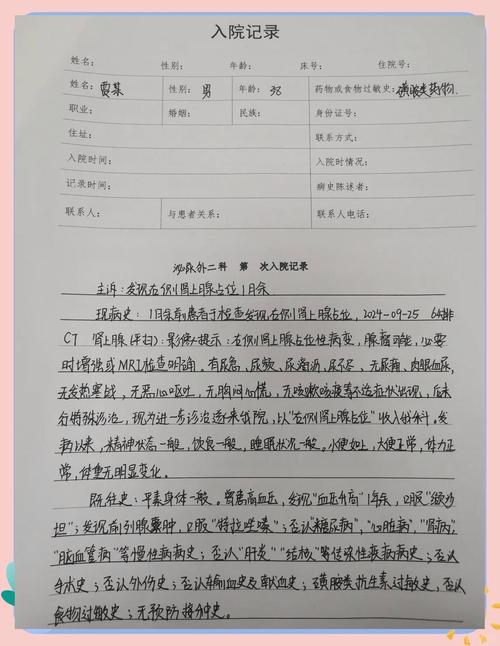 入院记录
姓名: 性别: 年龄: 床号: 住院号:
姓名: 贾某 性别: 男 年龄: 38 药物或食物过敏史: 磺胺类药物.
职业: 婚姻: 民族: 身份证号:
住址: 联系方式:
入院时间: 入院时情况:
记录时间: 病史陈述者:
联系人: 与患者关系: 联系人电话:
泌尿外二科 第 次入院记录
主诉:发现右侧肾上腺占位1月余
现病史:1月余前患者于检查发现右侧肾上腺占位,2024-09-25 64排
CT 肾上腺(平扫):影像提示:右侧肾上腺占位性病变,腺瘤可能,必要
时增强或MRI检查明确。有尿急、尿频、尿滴沥、尿不尽、无尿痛、肉眼血尿,
无发热寒战,无恶心呕吐,无胸闷心慌,无咳嗽咳痰等不适症状出现,后未
行特殊诊治,现为进一步诊治遂来我院,以"右侧肾上腺占位"收入我科。发
病以来,精神状态一般,饮食一般,睡眠状况一般。小便如上,大便正常,体力正
常,体重无明显变化。
既往史:平素身体一般。曾患高血压,发现"血压升高"1年余,口服"缬沙
坦";发现前列腺囊肿,口服"特拉唑嗪";否认"糖尿病","心脏病","肾病",
"脑血管病"等慢性病病史;否认"肝炎""结核"等传染性疾病病史;否认
手术史;否认外伤史;否认输血史及献血史;磺胺类抗生素过敏史,否认
食物过敏史;无预防接种史。